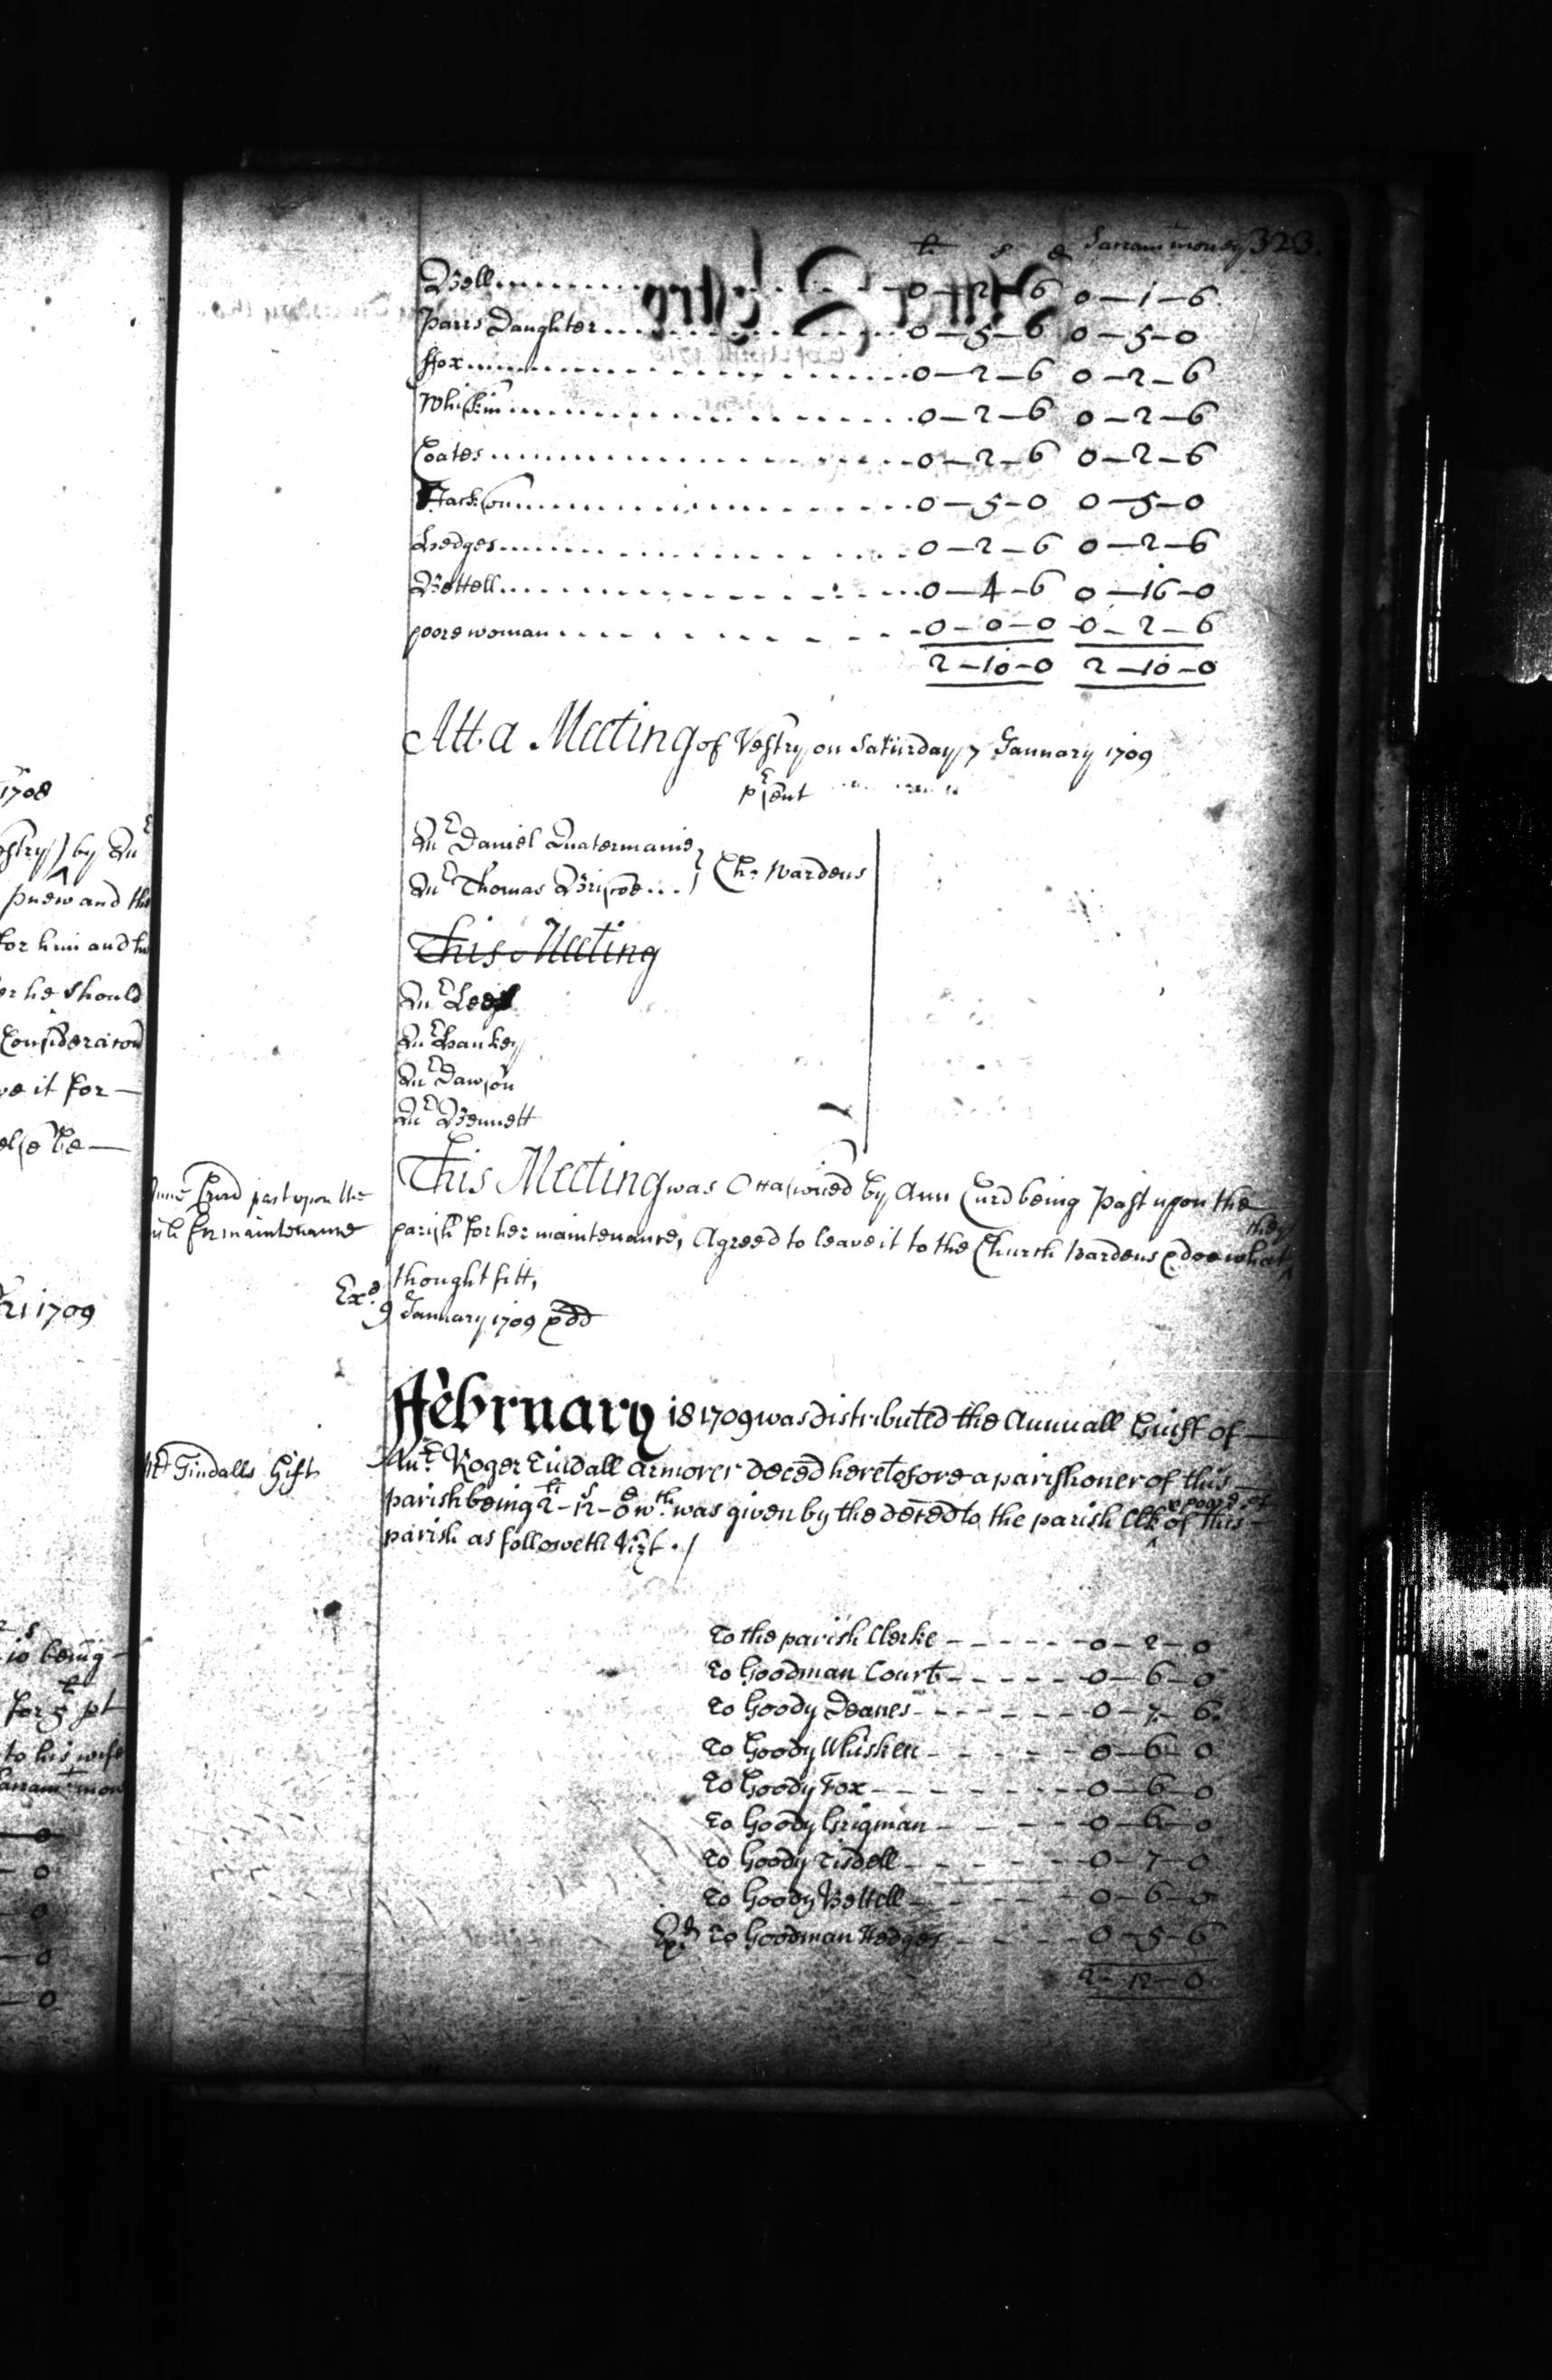 1708
by Mr
pnew and the
for him and
he should
Consideracion
it for
else be
1709
being
for 5 pt
to his wife
li s d Sacram.t money 323
Bell 0-2-6 0-1-6
Parrs Daughter 0-5-6 0-5-0
ffox 0-2-6 0-2-6
Whiskin 0-2-6 0-2-6
Coates 0-2-6 0-2-6
Jackson 0-5-0 0-5-0
Hedges 0-2-6 0-2-6
Bettell 0-4-6 0-16-0
poore woman 0-0-0 0-2-6
2-10-0 2-10-0
Att a Meeting of Vestry on Saturday 7 January 1709
p'sent
Mr Daniel Quatermaine
Mr Thomas Briscoe } Ch: Wardens
This Meeting
Mr Lee
Mr Hankey
Mr Dawson
Mr Bennett
Curd past upon the
for maintenance
This Meeting was Occasioned by Ann Curd being Past upon the
parish for her maintenance, Agreed to leave it to the Church Wardens to doe what they
thought fitt,
Exd. 9 January 1709
ffebruary 18 1709 was distributed the Annuall Guift of
Mr Tindalls Gift
Mr. Roger Tindall Armorer deced heretofore a parishioner of this
parish being 2li-12s-0d wch. was given by the deced to the parish Clk & poore of this
parish as followeth Vizt ./
To the parish Clerke 0-2-0
To Goodman Court 0-6-0
To Goody Deanes 0-7-6
To Goody Whisken 0-6-0
To Goody Fox 0-6-0
To Goody Grigman 0-6-0
To Goody Tisdell 0-7-0
To Goody Bettell 0-6-0
Exd To Goodman Hedges 0-5-6
2-12-0